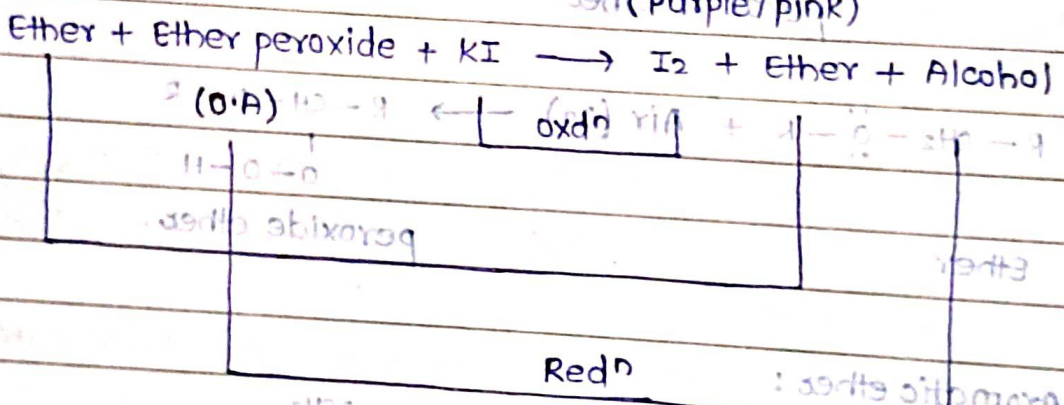 (Purple/pink)
Ether + Ether peroxide + KI → I2 + Ether + Alcohol
(O·A)
oxdn
Redn